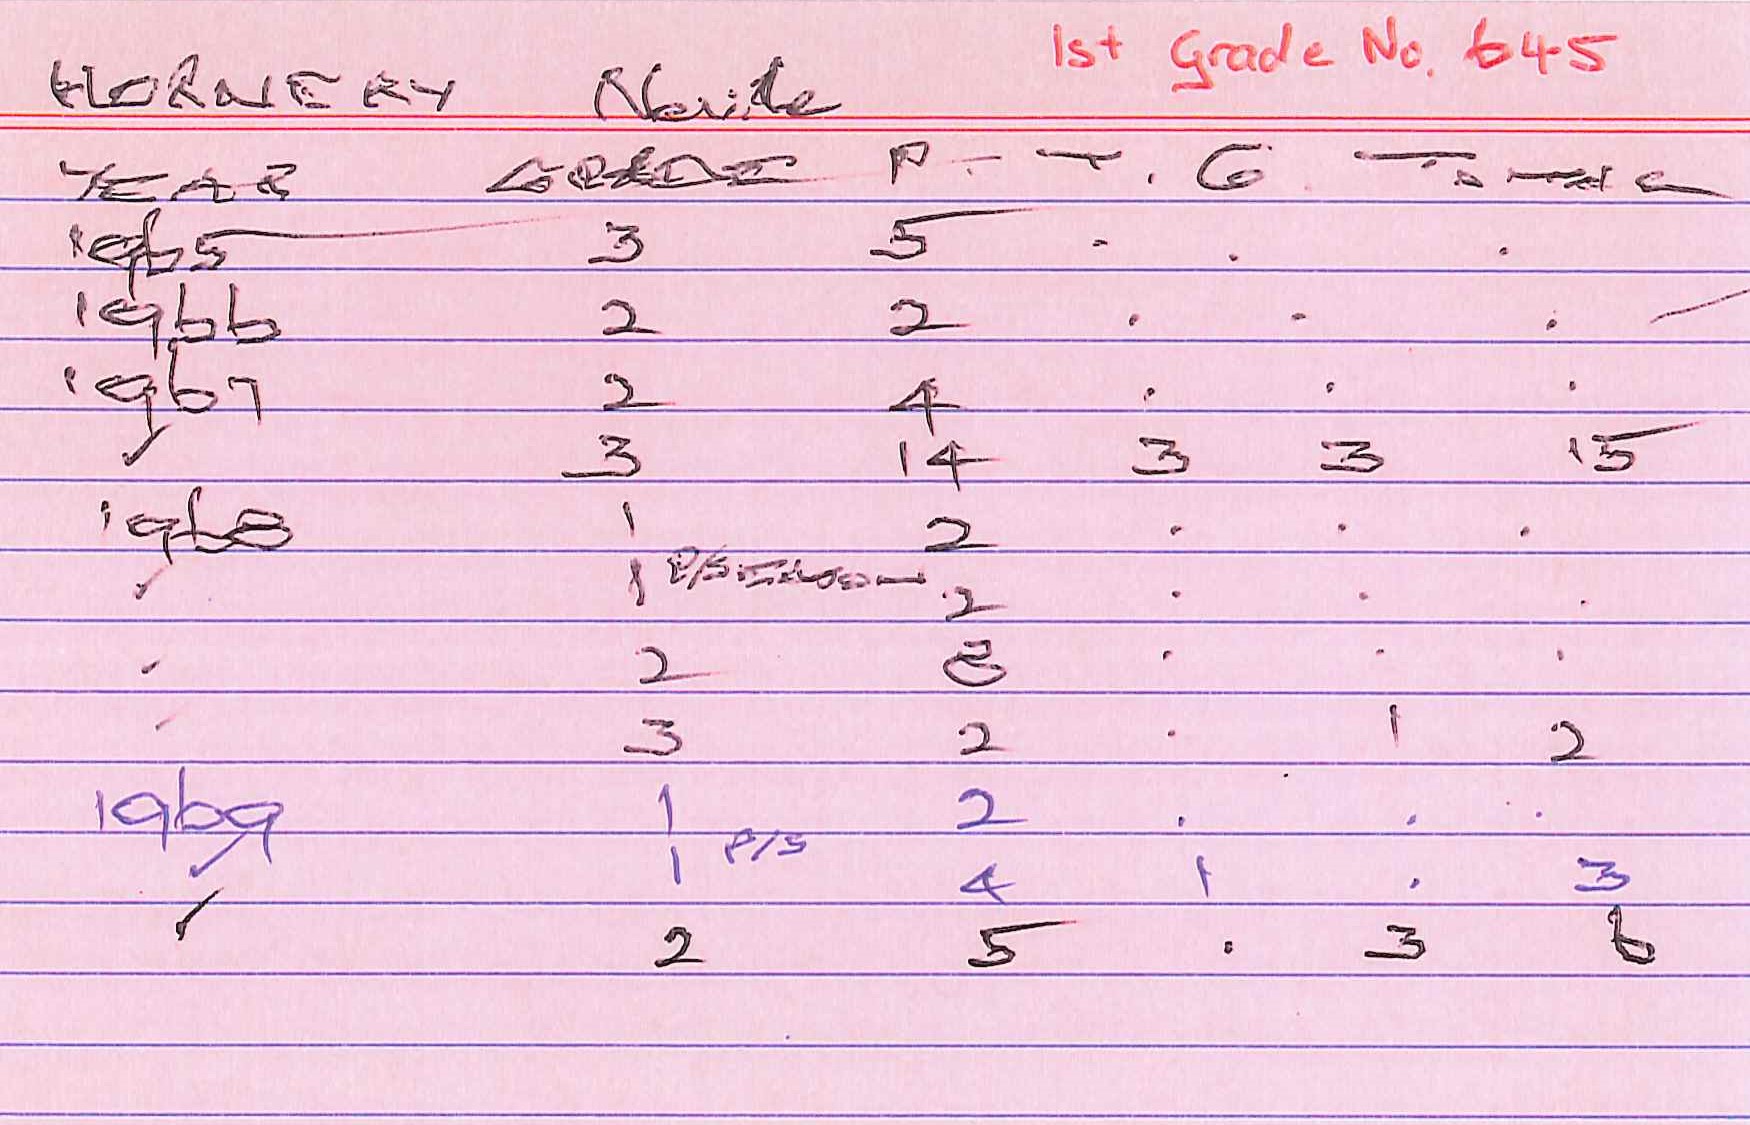 1st Grade No. 645
HORNERY Neville
YEAR GRADE P. T. G. TOTAL
1965 3 5 . . .
1966 2 2 . . .
1967 2 4 . . .
✓ 3 14 3 3 15
1968 1 2 . . .
✓ 1 P/SEASON 2 . . .
✓ 2 8 . . .
✓ 3 2 . 1 2
1969 1 2 . . .
✓ 1 P/S 4 1 . 3
✓ 2 5 . 3 6